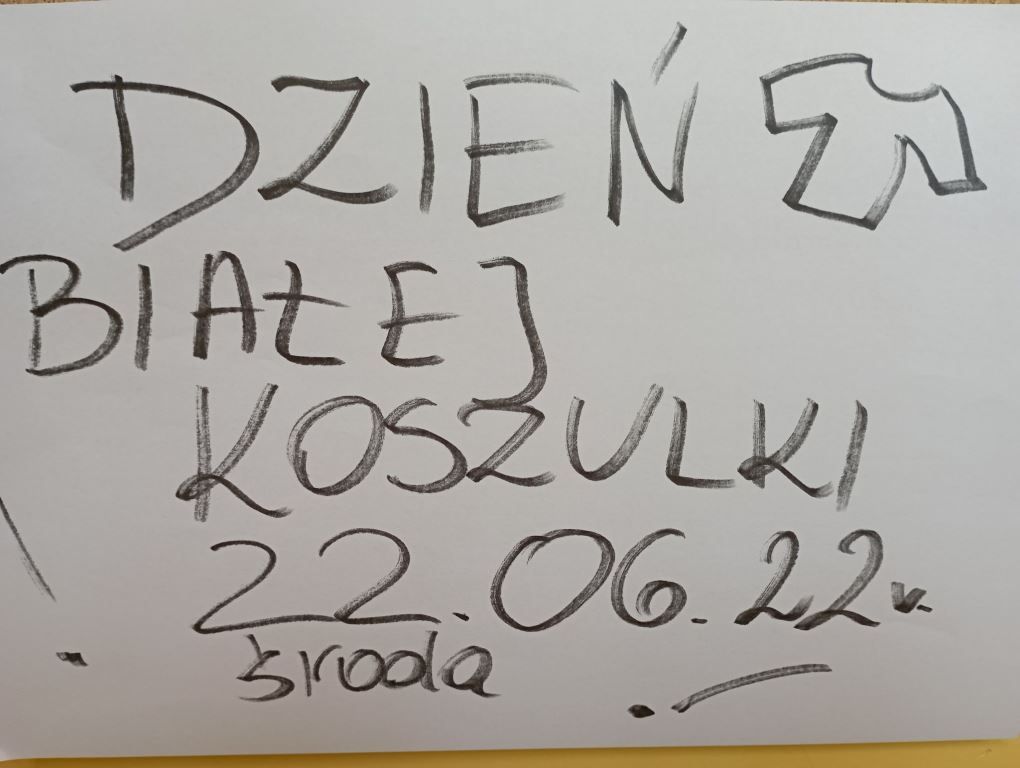 DZIEŃ
BIAŁEJ
KOSZULKI
22.06.22r.
środa